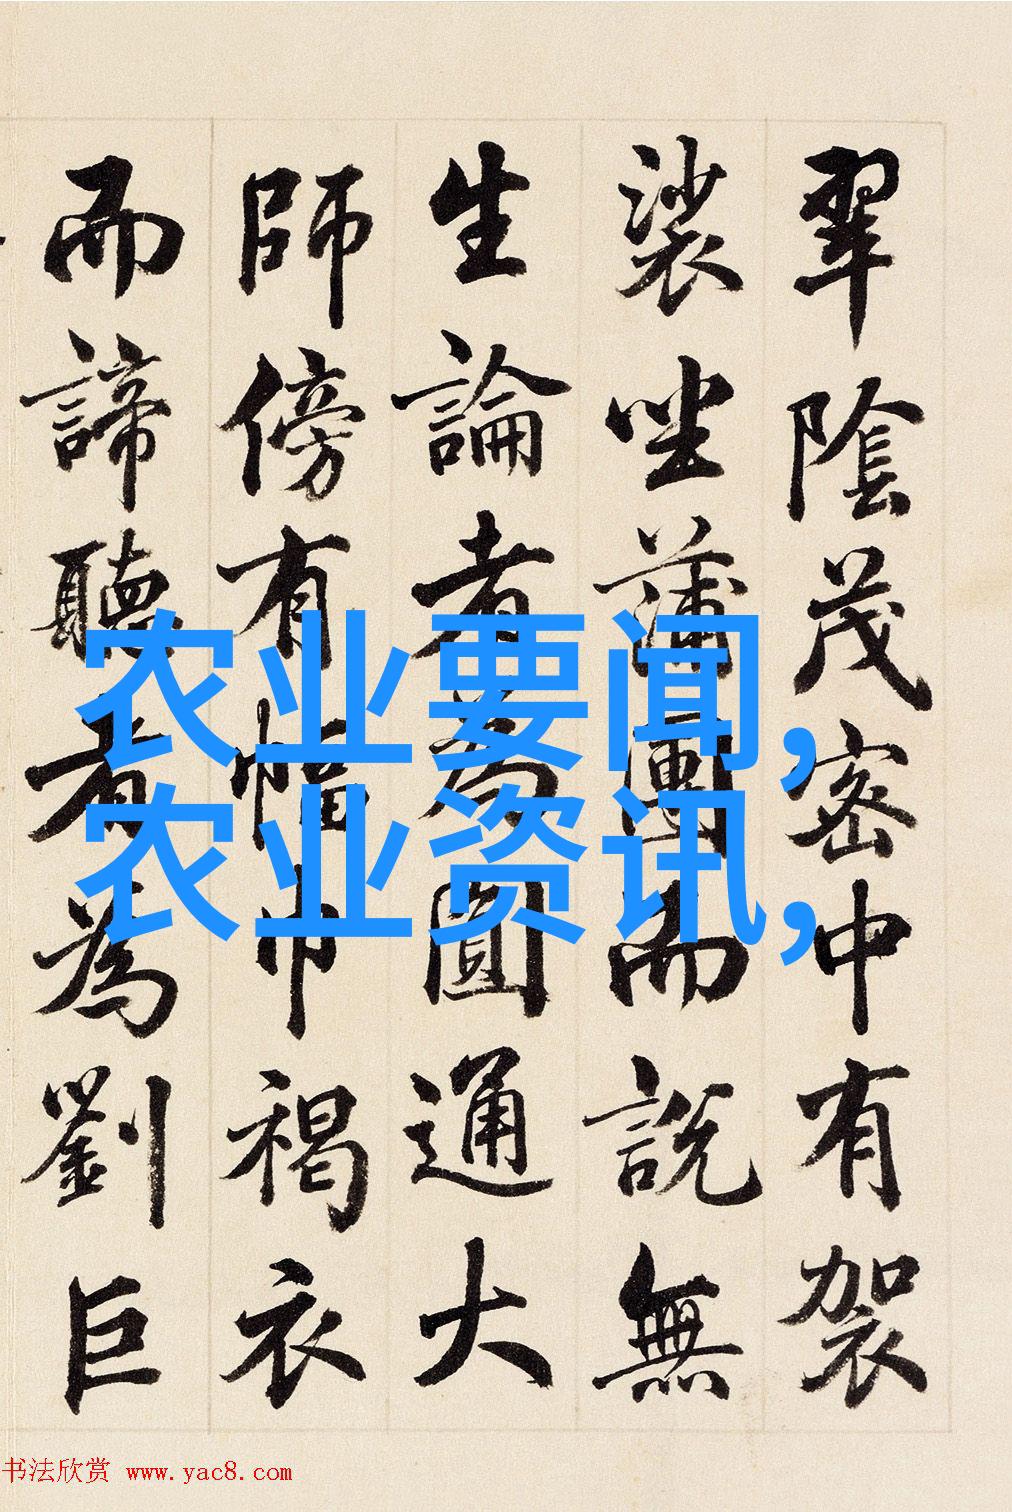 翠陰茂密中有袈
裟坐蒲團而說無
生論者為圓通大
師傍有幅巾褐衣
而諦聽者為劉巨
农业要闻,
农业资讯,
书法欣赏 www.yac8.com